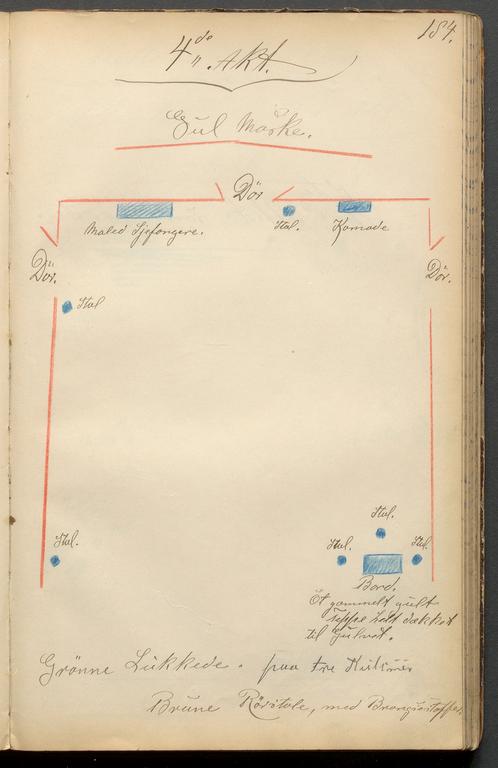 184.
4de Akt.
Gul Maske.
Dör
Maled Sjefongere.
Stol.
Komode
Dör.
Dör.
Stol
Stol.
Stol.
Stol.
Stol.
Bord.
Et gammelt gult
Teppe helt dækket
til Gulvet.
Grönne Lukkede. paa tre
Brune Rörstole, med